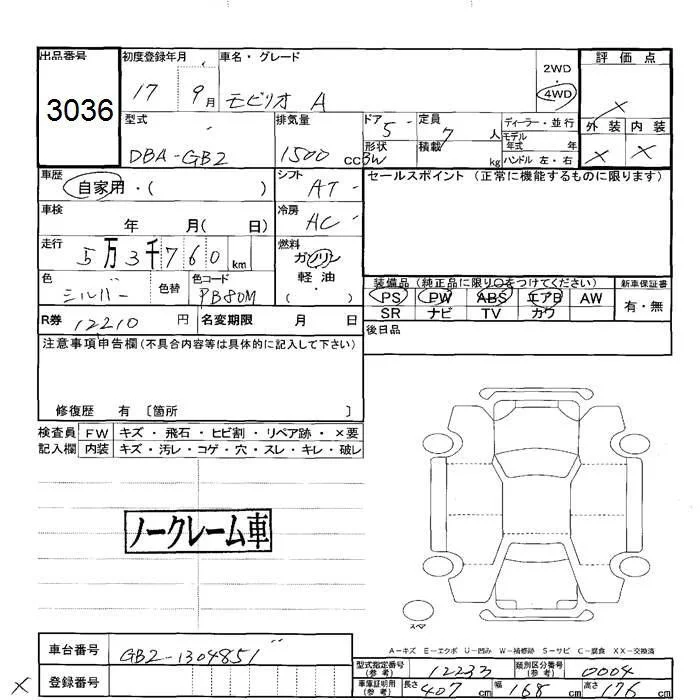 出品番号 初度登録年月 車名・グレード 2WD・4WD 評価点
3036 17 9月 モビリオ A ×
型式 排気量 ドア 定員 ディーラー・並行 外装 内装
DBA-GB2 1500cc 5 7人 モデル年式 年 × ×
形状 3W 積載 kg ハンドル 左・右
車歴 シフト セールスポイント (正常に機能するものに限ります)
自家用・( ) AT
車検 冷房
年 月( 日) AC
走行 燃料
5万3千760km ガソリン
軽油
色 色替 色コード ( )
シルバー PB80M
装備品 (純正品に限り○をつけてください) 新車保証書
PS PW ABS エアB AW 有・無
SR ナビ TV カワ
R券 12210円 名変期限 月 日 後日品
注意事項申告欄(不具合内容等は具体的に記入して下さい)
修復歴 有 〔箇所 〕
検査員 FW キズ・飛石・ヒビ割・リペア跡・×要
記入欄 内装 キズ・汚レ・コゲ・穴・スレ・キレ・破レ
ノークレーム車
スペア
A-キズ E-エクボ U-凹み W-補修跡 S-サビ C-腐食 XX-交換済
車台番号 GB2-1304851
型式指定番号(参考) 12233 類別区分番号(参考) 0004
× 登録番号
車庫証明用(参考) 長さ 407cm 幅 168cm 高さ 176cm